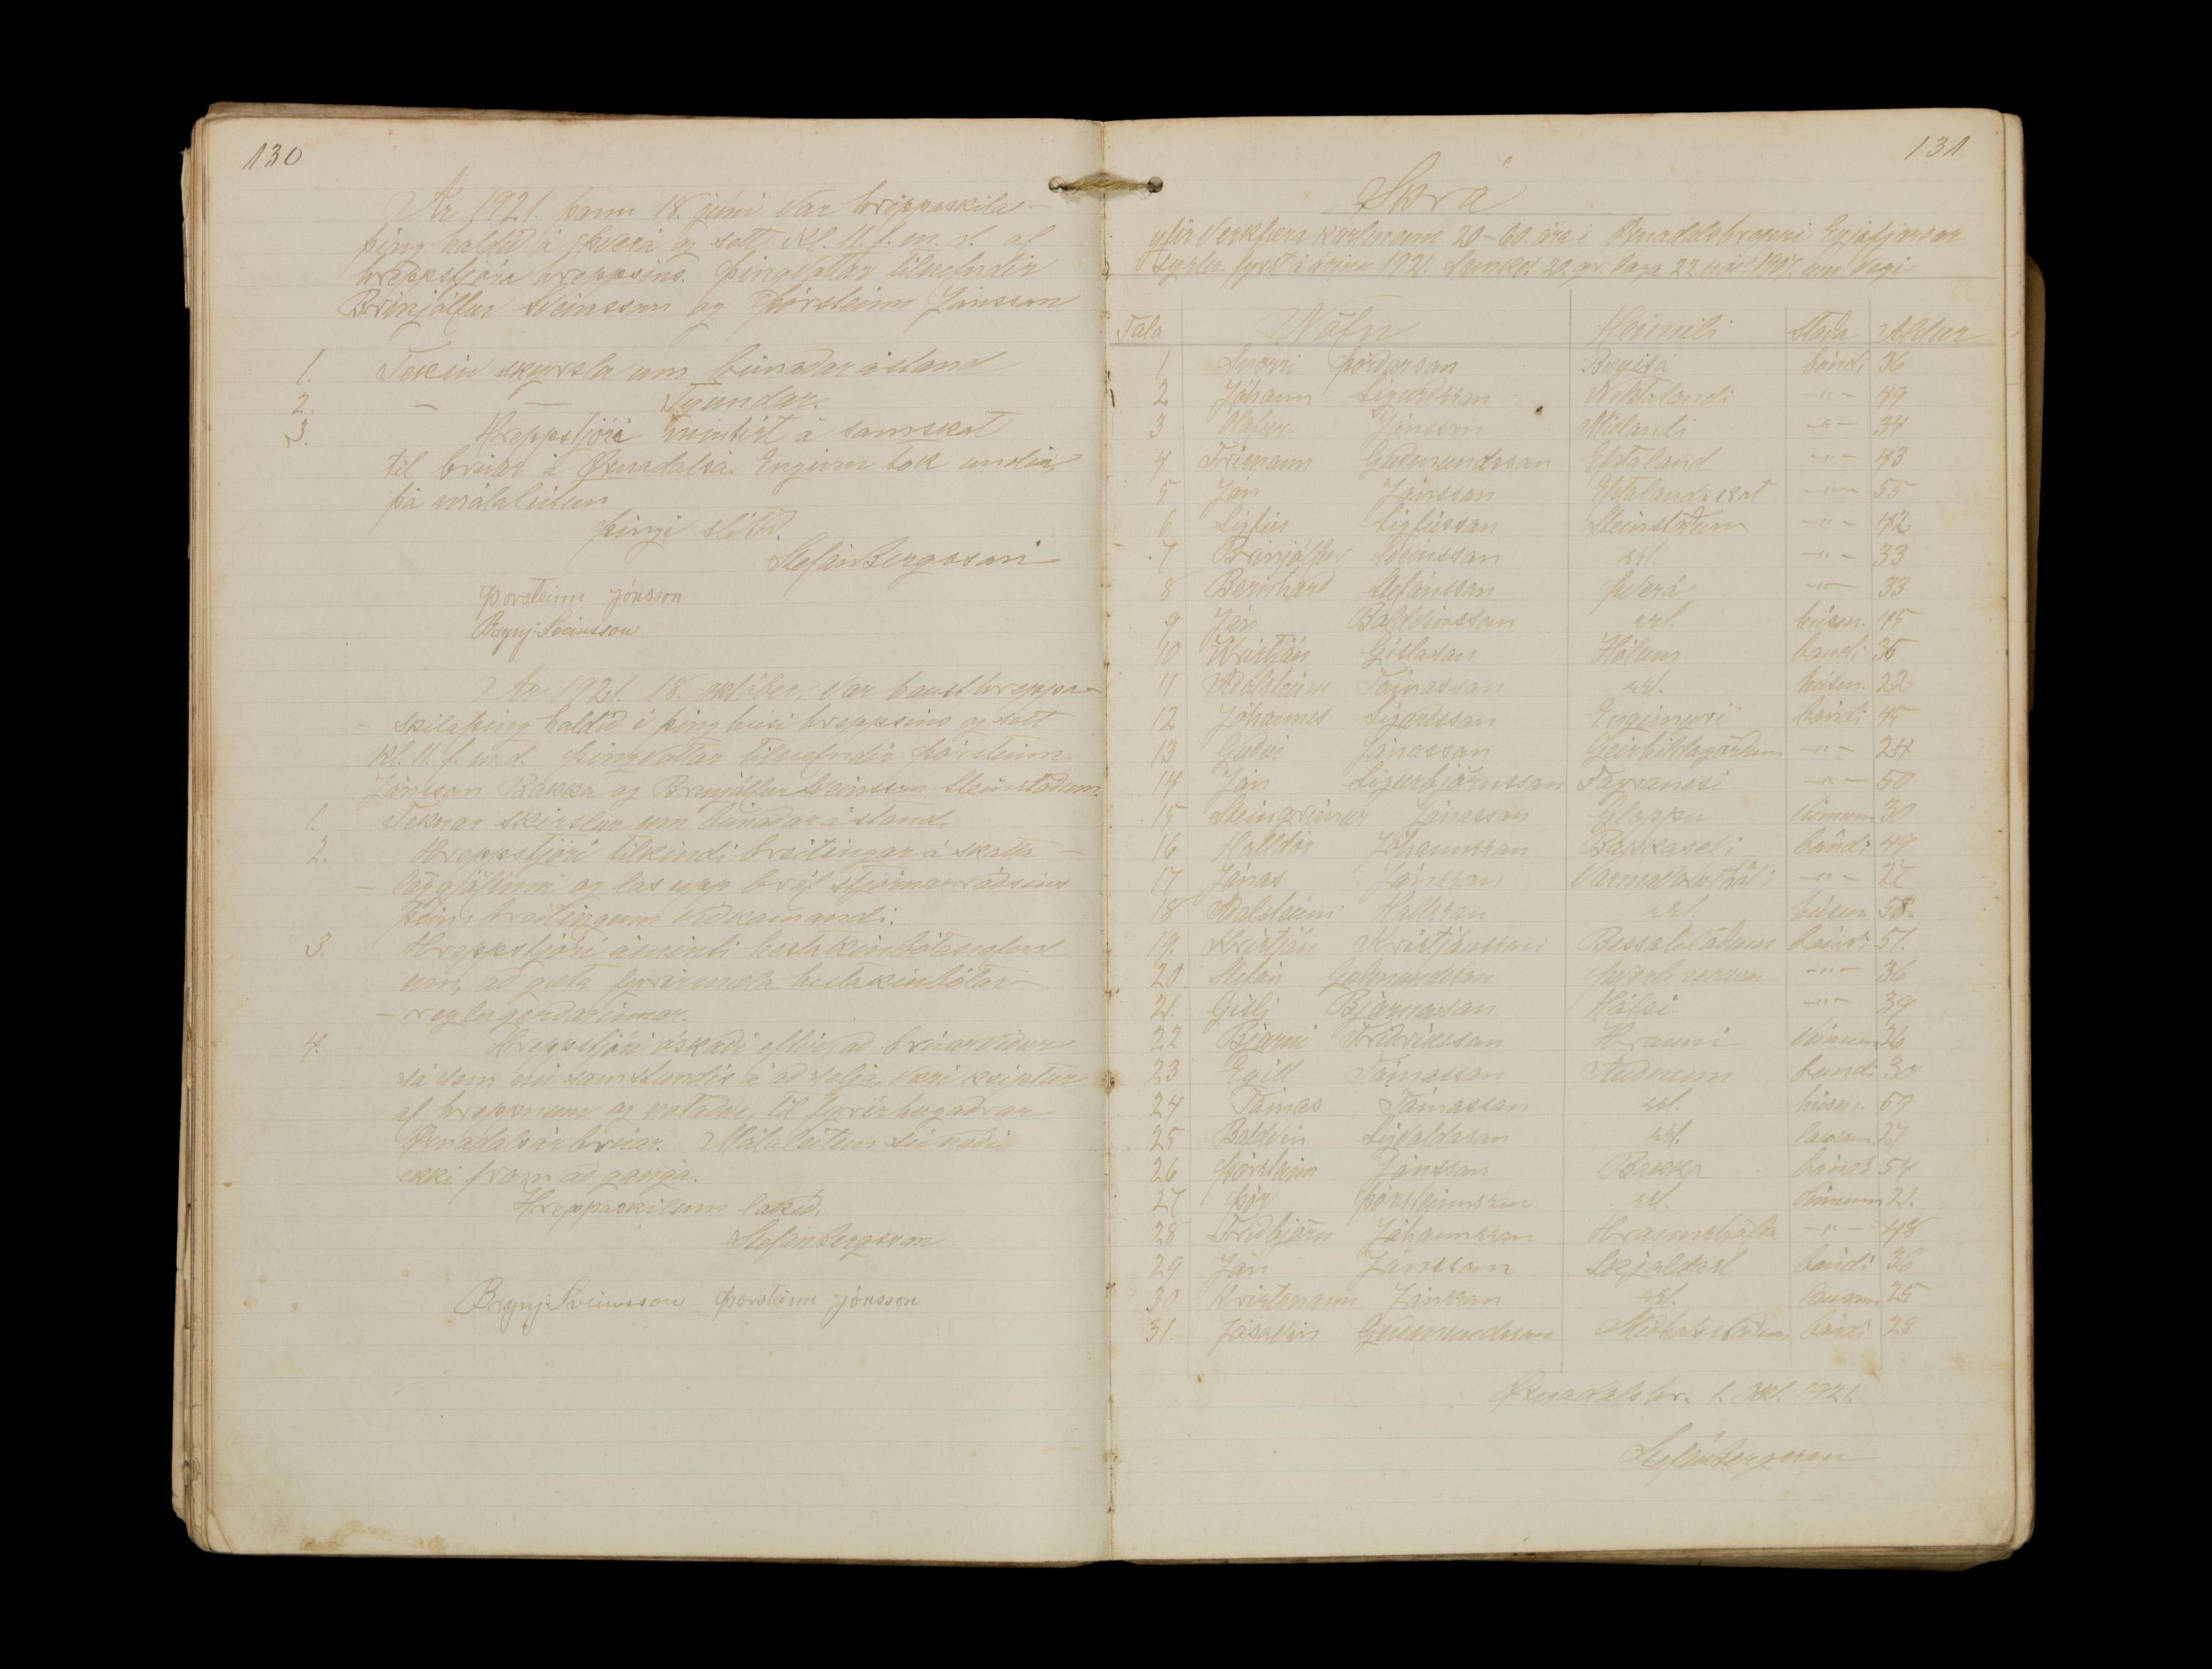 130
Ár 1921. þann 18. júni var hreppaskila-
þing haldið á Þverá og sett kl. 11. f. m. d. af
hreppstjóra hreppsins. Þingvottar tilnefndir
Brinjólfur Sveinsson og Þórsteinn Jónsson
1. Tekin skyrsla um búnaðarástand
2. — — Tyundar.
3. Hreppstjóri mintist á samskot
til brúar á Öxnadalsá. Enginn tók undir
þá málaleitun
Þingi slitið.
Stefán Bergsson
Þorsteinn Jónsson
Brynj. Sveinsson
Ár 1921. 18. október, var hausthreppa-
- skilaþing haldið í þinghúsi hreppsins og sett
Kl. 11. f. m. d. Þingvottar tilnefndir Þórsteinn
Jónsson Bakka og Brinjólfur Sveinsson Steinstöðum.
1. Teknar skirslur um búnaðarástand.
2. Hreppstjóri tilkindi breitingar á skatta -
- löggjöfinni og las upp bréf stjórnarráðsins
þeim breitingum viðkomandi.
3. Hreppstjóri áminti hestakinbótanefnd
um, að gæta firirmæla hestakinbótar-
- reglugerðarinnar.
4. Hreppstjóri óskaði eftir, að brúarviður
sá sem nú samstundis á að selja, væri keiptur
af hreppnum og notaður til fyrirhugaðrar
Öxnadalsárbrúar. Málaleitun sú náði
ekki fram að ganga.
Hreppaskilum lokið.
Stefán Bergsson
Brynj. Sveinsson Þorsteinn Jónsson
131
Skrá
yfir verkfæra karlmenn 20-60. ára í Öxnadalshreppi Eyjafjarðar
syslu. fyrst á árinu 1921. Samkv. 20. gr. laga 22. nóv. 1907. um vegi
Tala Nöfn Heimili Staða Aldur
1 Snorri Þórðarson Bægisá bóndi 36
2 Jóhann Sigurðsson Neðstalandi -"- 49
3 Ólafur Jónsson Miðlandi -"- 34
4 Frímann Guðmundsson Efstaland -"- 43
5 Jón Jónsson Efstalandskot -"- 55
6 Sigfús Sigfússon Steinstöðum -"- 42
7 Brinjólfur Sveinsson sst. -"- 33
8 Bernharð Stefánsson Þverá -"- 33
9 Jón Baldvinsson sst. húsm. 45
10 Kristján Gíslason Hólum bóndi 35
11 Aðalsteinn Tómasson sst. húsm. 22
12 Jóhannes Sigurðsson Engimyri bóndi 45
13 Guðni Jónasson Geirhildargörðum -"- 24
14 Jón Sigurbjörnsson Fagranesi -"- 50
15 Steingrímur Jónasson Gloppu vinnum 30
16 Halldór Jóhannsson Bakkaseli bóndi 49
17 Jónas Jónsson Varmavatnshól. -"- 27
18 Aðalsteinn Hallsson sst. húsm 58
19. Kristján Kristjánsson Bessahlöðum bóndi 51.
20. Stefán Guðmundsson Þverbrekku -"- 36
21. Gísli Bjarnason Hólsi -"- 39
22 Bjarni Friðriksson Hrauni vinnum 26
23 Egill Tómasson Auðnum bóndi 30
24 Tómas Tómasson sst. húsm. 59
25 Baldvin Sigvaldason sst. lausam. 27
26 Þórsteinn Jónsson Bakka bóndi 54
27 Þór Þórsteinsson sst. vinnum 21.
28 Friðbjörn Jóhannsson Hraunshöfða -"- 48
29 Jón Jónsson Skjaldast bóndi 36
30 Kristmann Jónsson sst. lausam 25
31 Jósavin Guðmundsson Miðhálsstöðum bóndi 28
Öxnadalshr. 1. Okt. 1921.
Stefán Bergsson